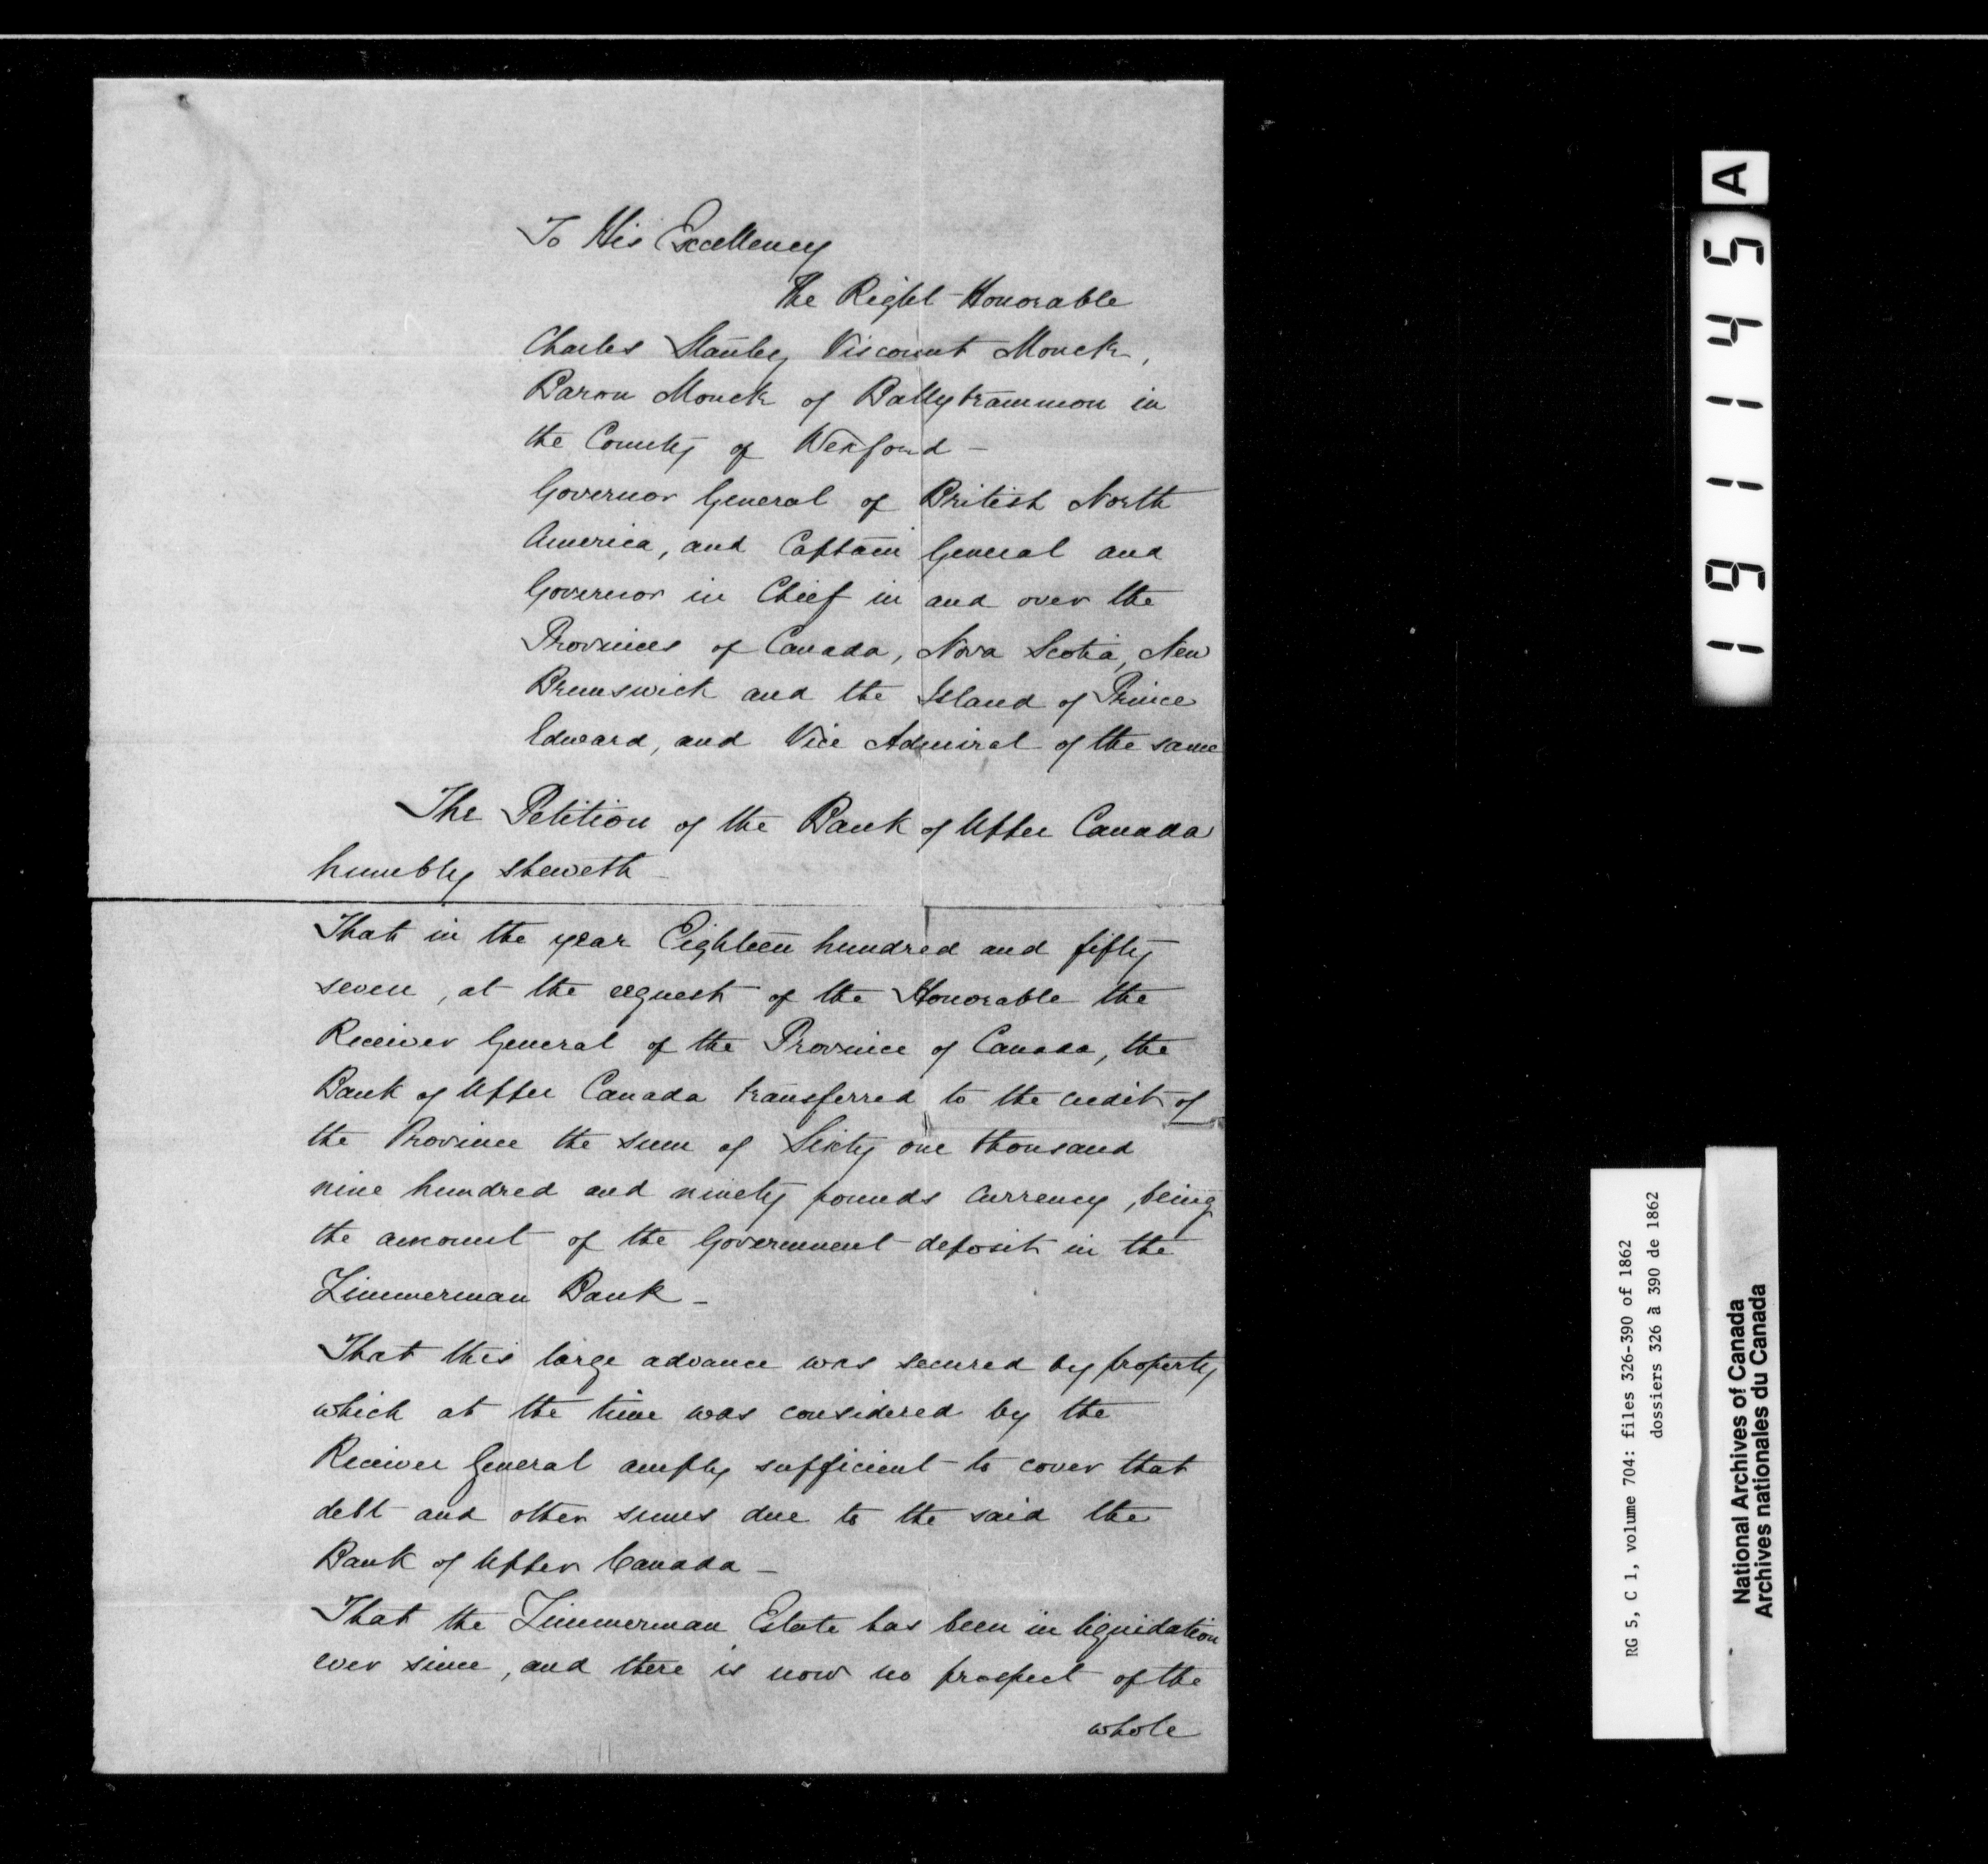 To His Excellency
The Right Honorable
Charles Stanley Viscount Monck,
Baron Monck of Ballytrammon in
the County of Wexford –
Governor General of British North
America, and Captain General and
Governor in Chief in and over the
Provinces of Canada, Nova Scotia, New
Brunswick and the Island of Prince
Edward, and Vice Admiral of the same
The Petition of the Bank of Upper Canada
humbly sheweth –
That in the year Eighteen hundred and fifty
seven, at the request of the Honorable the
Receiver General of the Province of Canada, the
Bank of Upper Canada transferred to the credit of
the Province the sum of Sixty one thousand
nine hundred and ninety pounds currency, being
the amount of the Government deposit in the
Zimmerman Bank –
That this large advance was secured by property
which at the time was considered by the
Receiver General amply sufficient to cover that
debt and other sums due to the said the
Bank of Upper Canada –
That the Zimmerman Estate has been in liquidation
ever since, and there is now no prospect of the
whole
191145 A
RG 5, C 1, volume 704: files 326-390 of 1862
dossiers 326 à 390 de 1862
National Archives of Canada
Archives nationales du Canada